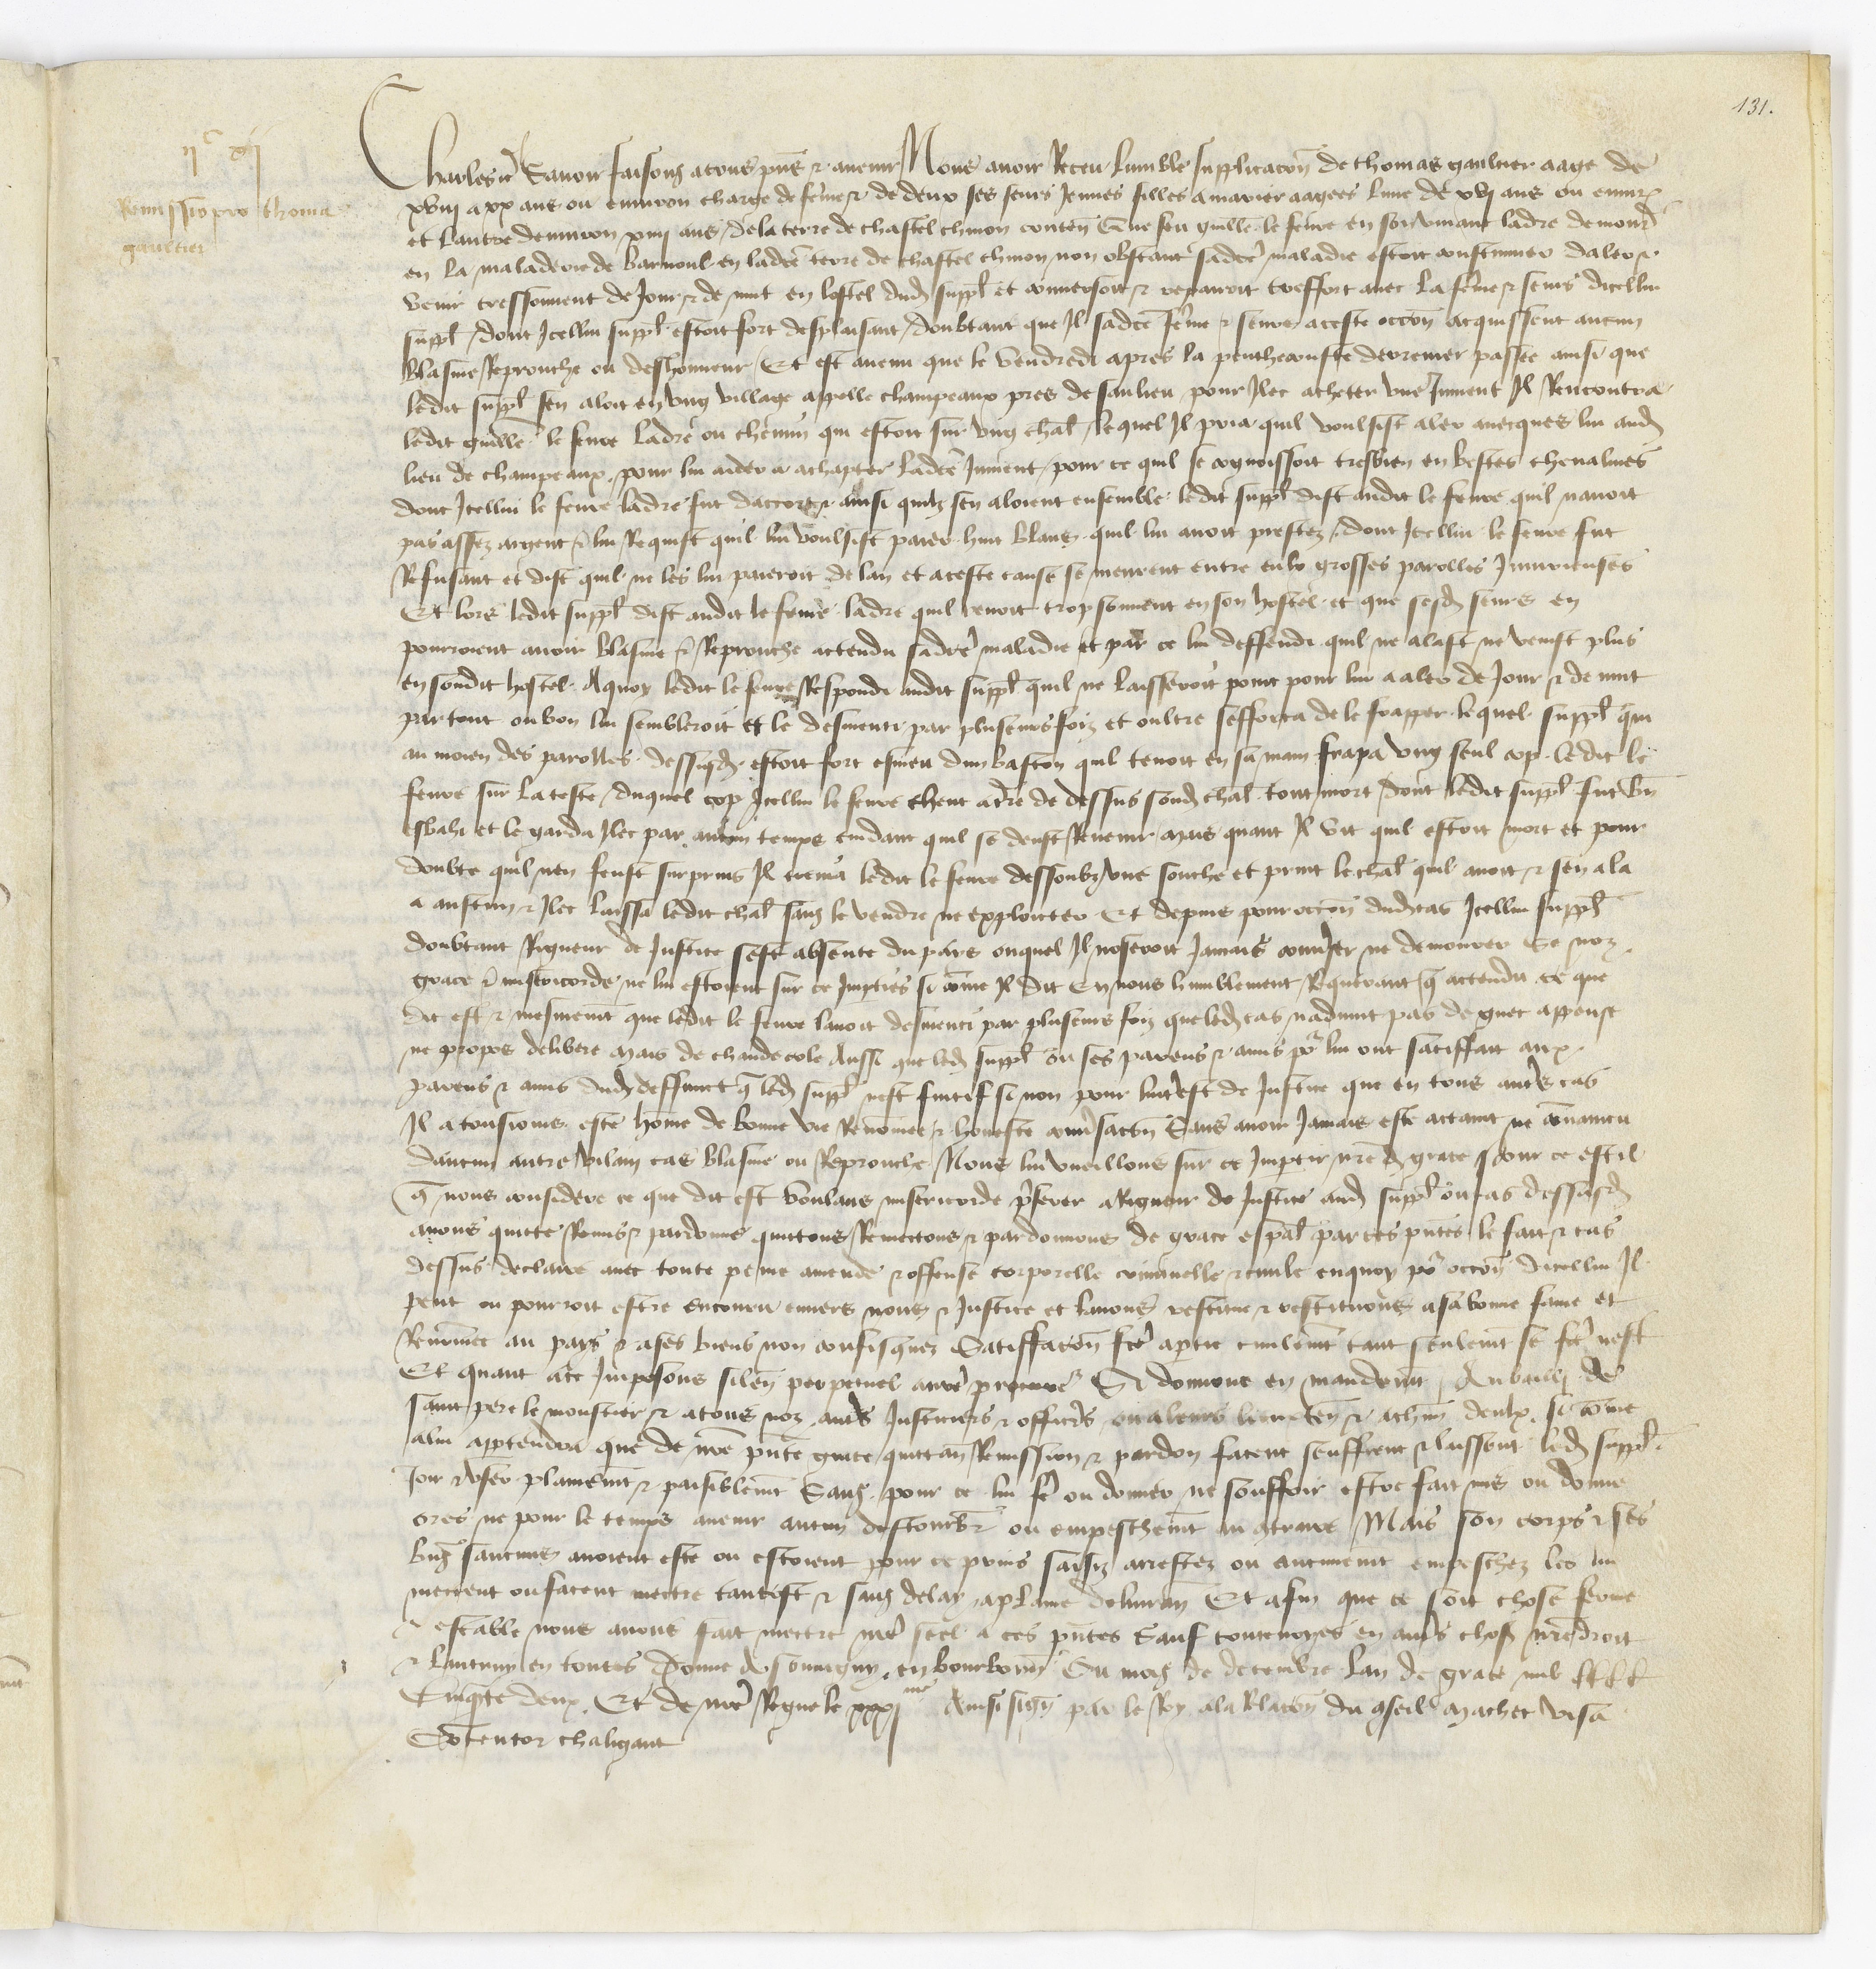 131.
IIc XII
Remissio pro thoma
gaultier
Charles etc Savoir faisons a tous pns & avenir Nous avoir Receu lumble supplicacon de thomas gaultier aage de
xviij a xx ans ou environ charge de feme & de deux ses seurs jeunes filles a marier aagees lune de xvj ans ou envir
et lautre denviron xiiij ans de la terre de chastel chinon conten Que feu guille le fevre en son vivant ladre demour
en la maladerie de barnoul en ladce terre de chastel chinon non obstant sadce maladie estoit coustumier daler &
venir tressouvent de jour & de nuit en lostel dud suppl et conversoit & repairoit tresfort avec la feme & seurs dicellui
suppl dont Icellui suppl estoit fort desplaisant doubtant que Il sadce feme & seurs a ceste occon acquissent aucun
blasme Reprouche ou deshonneur Et est avenu que le vendredi apres la penthecouste derrenier passee ainsi que
ledit suppl sen aloit en ung village appelle champeaux pres de saulieu pour Ilec acheter une Jument Il Rencontra
ledit guille le fevre ladre ou chemin qui estoit sur ung chal lequel Il pria quil voulsist aler avecques lui aud
lieu de champeaux pour lui aider a achapter ladce Jument pour ce quil se cognoissoit tresbien en bestes chevalines
dont Icellui le fevre ladre fut daccort & ainsi quilz sen aloient ensemble ledit suppl dist audit le fevre quil navoit
pas assez argent & lui Requist quil lui voulsist paier huit blans quil lui avoit prestez dont Icellui le fevre fut
Refusant et dist quil ne les lui paieroit de lan et a ceste cause se meurent entre eulx grosses parolles Injurieuses
Et lors ledit suppl dist audit le fevre ladre quil venoit trop souvent en son hostel et que sesd seurs en
pourroient avoir blasme & Reprouche actendu sadce maladie et par ce lui deffendi quil ne alast ne venist plus
en sondit hostel Aquoy ledit le fevre Respondi audit suppl quil ne laisseroit point pour lui a aler de Jour & de nuit
par tout ou bon lui sembleroit et le desmenti par pluseurs foiz et oultre sefforca de le frapper lequel suppl qui
au moien des parolles dessusd estoit fort esmeu dun baston quil tenoit en sa main frapa ung seul cop ledit le
fevre sur la teste duquel cop Icellui le fevre cheut a tre de dessus sond chal tout mort dont ledit suppl fut bn
esbahi et le garda Ilec par aucun temps cuidant quil se deust Revenir mais quant Il vit quil estoit mort et pour
doubte quil nen feust surprins Il ledit le fevre dessoubz une souche et print le chal quil avoit & sen ala
a austun & Ilec laissa ledit chal sans le vendre ne exploicter Et depuis pour occon dud cas Icellui suppl
doubtant Rigueur de Justice sest absente du pais ouquel Il noseroit Jamais conviser ne demourer se noz
grace & misericorde ne lui estoient sur ce Imparties si come Il dit En nous humblement Requerant q actendu ce que
dit est & mesmemt que ledit le fevre lavoit desmenti par pluseurs foiz que led cas nadvint pas de guet appense
ne propos delibere mais de chaude cole Aussi que led suppl ou ses parens & amis por lui ont satiffait aux
parens & amis dud deffunct q led suppl nest fuitif si non pour linterest de Justice que en tous autrs cas
Il a tousiours este home de bonne vie Renomee & honneste convsacon Sans avoir Jamais este actaint ne convaincu
daucun autre vilain cas blasme ou Reprouche Nous lui vueillons sur ce Impartir nre d grace pour ce est il
q nous considere ce que dit est voulans misericorde pferer a Rigueur de Justice aud suppl ou cas dessusd
avons quicte Remis & pardonne quictons Remectons & pardonnons de grace espal par ces pntes le fait & cas
dessus declaire avec toute peine amende & offense corporelle criminelle & civile en quoy por occon dicellui Il
peut ou pourroit estre encouru envers nous & Justice et lavons restitue & restituons a sa bonne fame et
Renomee au pays & a ses biens non confisquez Satiffacon fce a partie civilemt tant seulemt se fce nest
Et quant a ce Imposons silen perpetuel a nre procur Si donnons en mandemt Au bailli de
saint pere le moustier & a tous noz autrs Justiciers & officrs ou a leurs lieuxten & a chun deulx si come
a lui apptendra que de nre pnte grace quictan Remission & pardon facent seuffrent & laissent led suppl
Joir & user plainemt & paisiblemt Sans pour ce lui fe ou donner ne souffrir estre fait mis ou donne
ores ne pour le temps avenir aucun destourb ou empeschemt au contraire Mais son corps & ses
biens saucuns avoient este ou estoient pour ce prins saisiz arrestez ou aucunemt empeschez les lui
mectent ou facent mectre tantost & sans delay a plaine delivran Et afin que ce soit chose ferme
& estable nous avons fait mectre nre scel a ces pntes Sauf toutevoyes en autrs choses nre droit
& lautruy en toutes Donne a Souvigny en bourbonn Ou mois de decembre lan de grace mil cccc
Cinqte deux Et de nre Regne le xxxjme Ainsi signe par le Roy a la Relacon du conseil machet visa
Contentor chaligaut